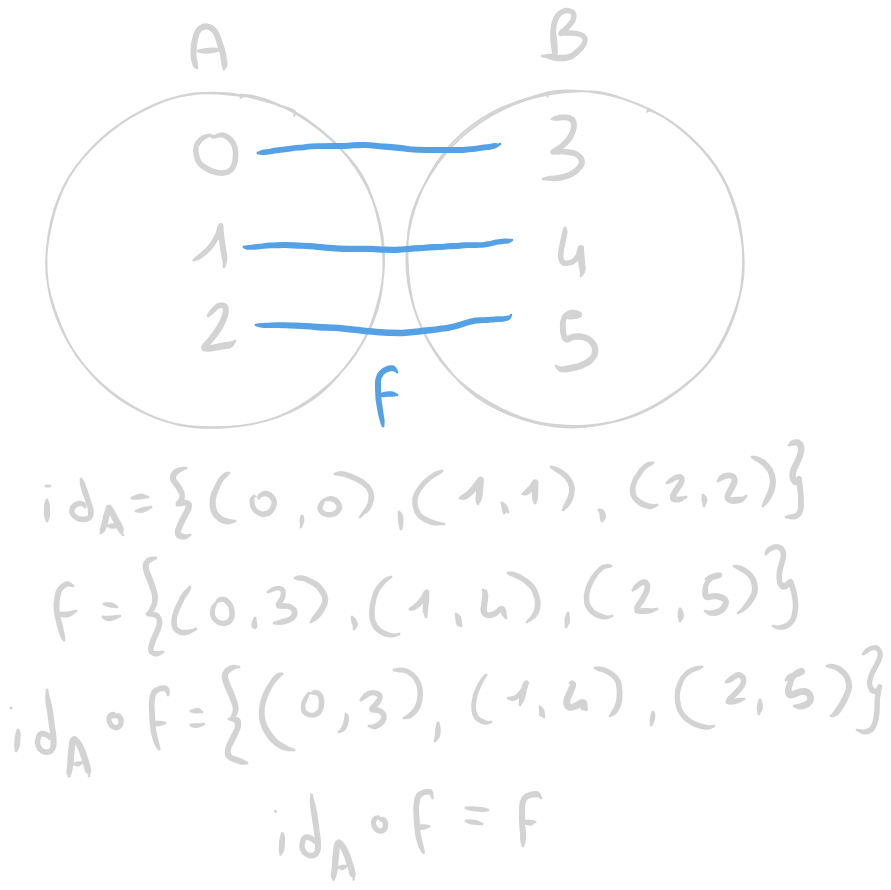 A B
0 3
1 4
2 5
F
id_A = {(0,0),(1,1),(2,2)}
F = {(0,3),(1,4),(2,5)}
id_A ∘ F = {(0,3),(1,4),(2,5)}
id_A ∘ F = F